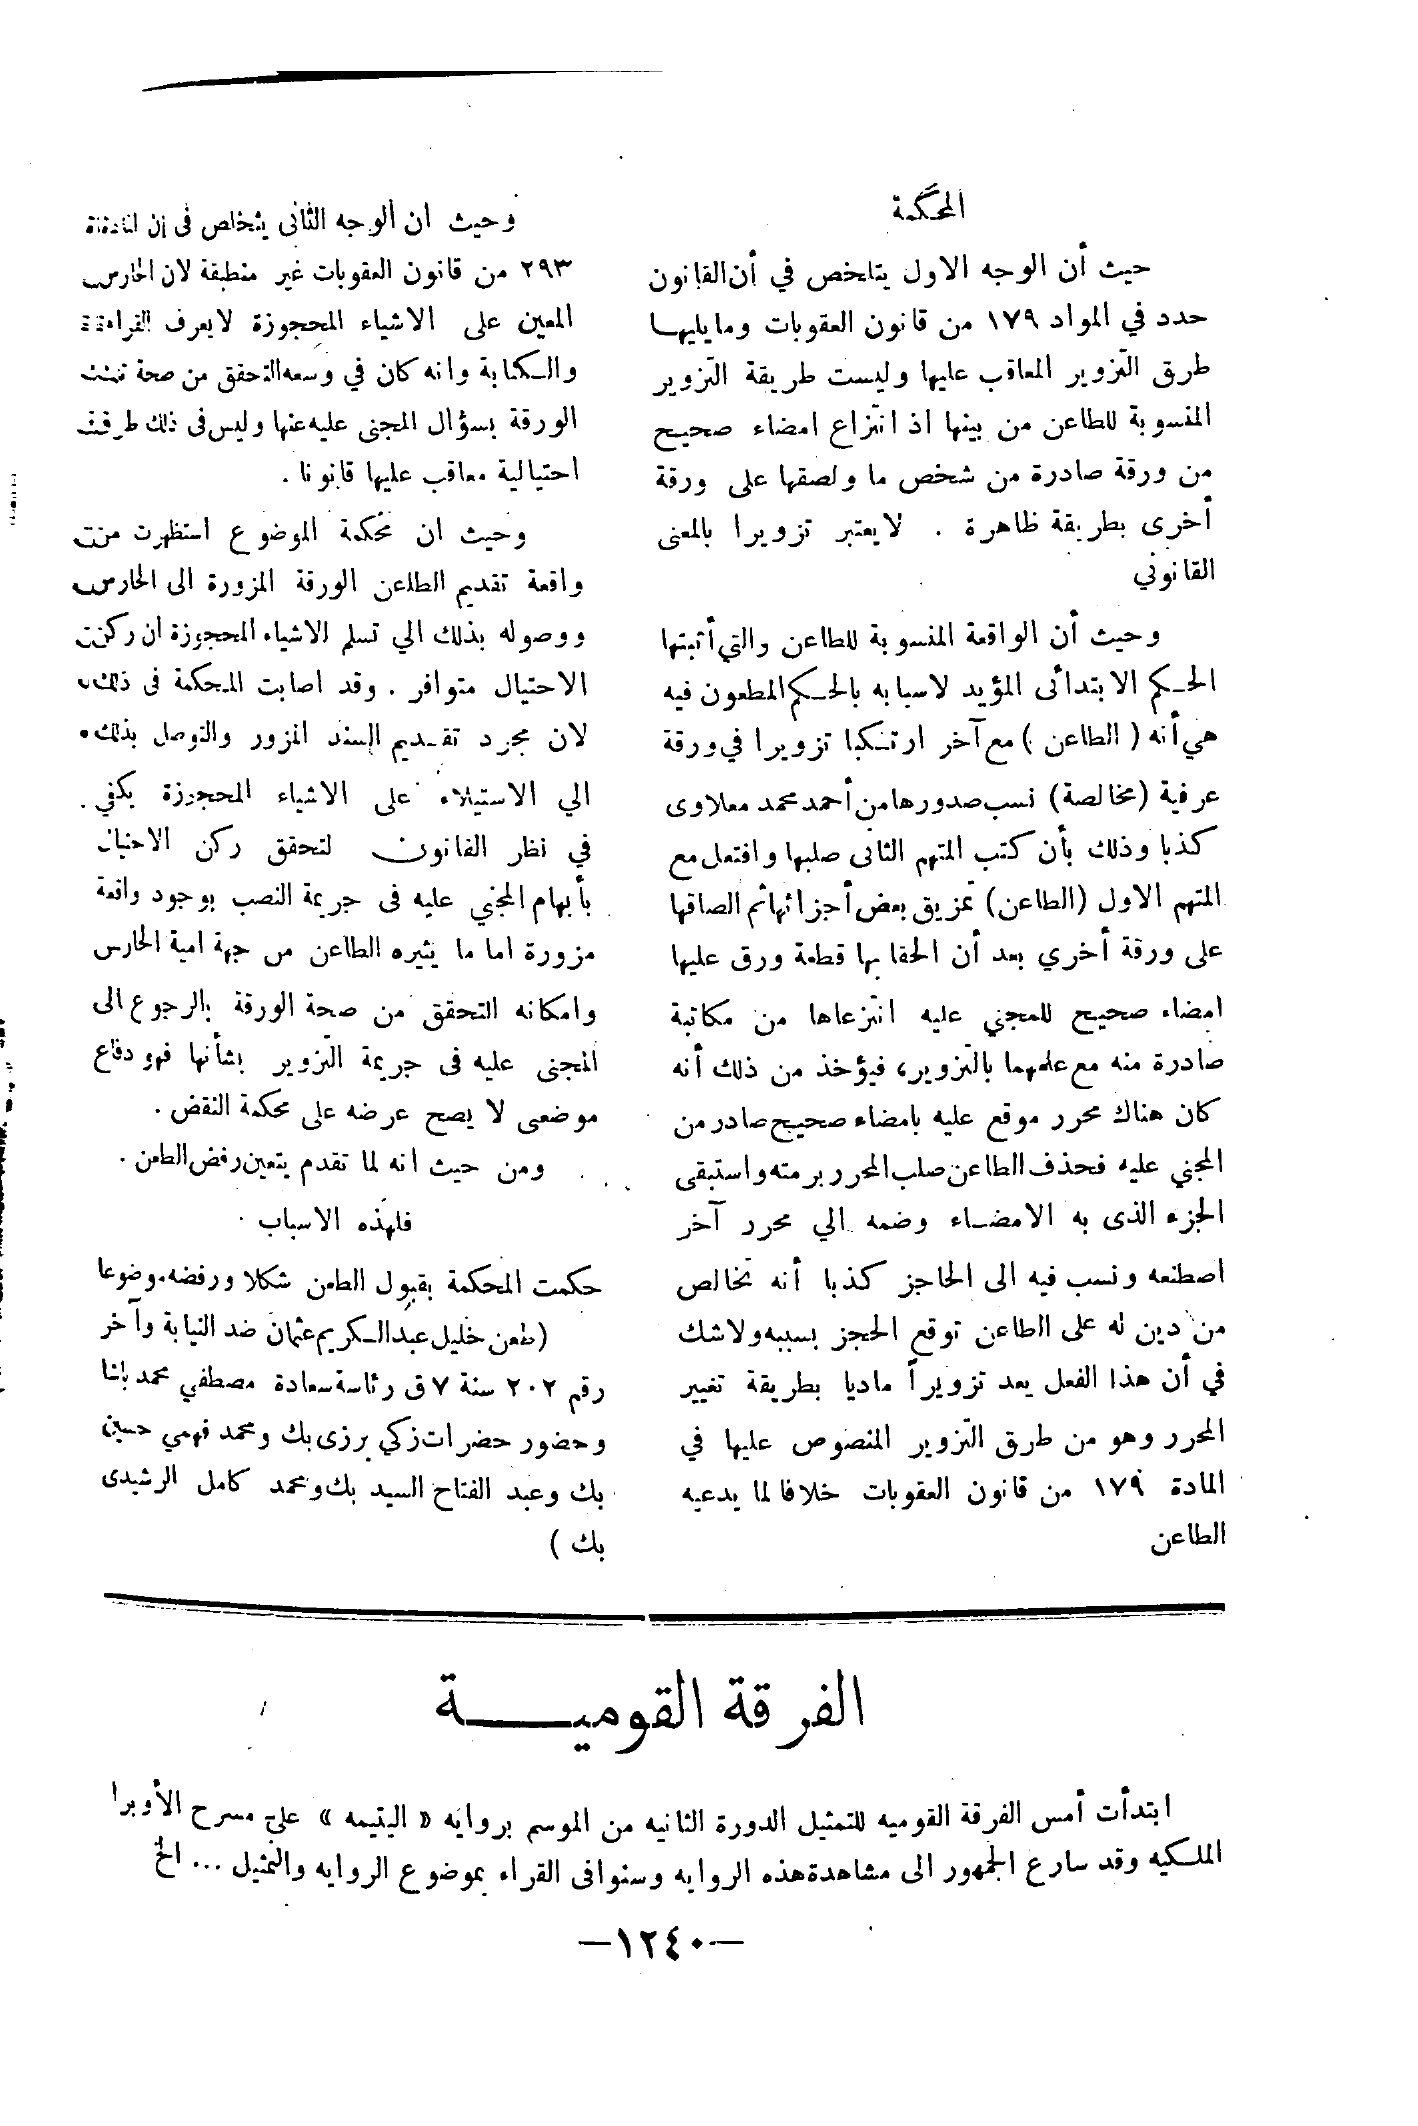 المحكمة
حيث أن الوجه الاول يتلخص في أن القانون
حدد في المواد ١٧٩ من قانون العقوبات وما يليها
طرق التزوير المعاقب عليها وليست طريقة التزوير
المنسوبة للطاعن من بينها اذ انتزاع امضاء صحيح
من ورقة صادرة من شخص ما ولصقها على ورقة
أخرى بطريقة ظاهرة . لا يعتبر تزويرا بالمعنى
القانوني
وحيث أن الواقعة المنسوبة للطاعن والتي أثبتها
الحكم الابتدائى المؤيد لاسبابه بالحكم المطعون فيه
هي أنه ( الطاعن ) مع آخر ارتكبا تزويرا في ورقة
عرفية (مخالصة) نسب صدورها من أحمد محمد معلاوى
كذبا وذلك بأن كتب المتهم الثانى صلبها وافتعل مع
المتهم الاول (الطاعن) تمزيق بعض أجزائها ثم الصاقها
على ورقة أخري بعد أن الحقا بها قطعة ورق عليها
امضاء صحيح للمجني عليه انتزعاها من مكاتبة
صادرة منه مع علمهما بالتزوير، فيؤخذ من ذلك أنه
كان هناك محرر موقع عليه بامضاء صحيح صادر من
المجني عليه فحذف الطاعن صلب المحرر برمته واستبقى
الجزء الذى به الامضاء وضمه الي محرر آخر
اصطنعه ونسب فيه الى الحاجز كذبا أنه تخالص
من دين له على الطاعن توقع الحجز بسببه ولاشك
في أن هذا الفعل يعد تزويراً ماديا بطريقة تغيير
المحرر وهو من طرق التزوير المنصوص عليها في
المادة ١٧٩ من قانون العقوبات خلافا لما يدعيه
الطاعن
وحيث ان الوجه الثانى يتخلص فى ان المادة
٢٩٣ من قانون العقوبات غير منطبقة لان الحارس
المعين على الاشياء المحجوزة لا يعرف القراءة
والكتابة وانه كان في وسعه التحقق من صحة
الورقة بسؤال المجنى عليه عنها وليس فى ذلك طرق
احتيالية معاقب عليها قانونا .
وحيث ان محكمة الموضوع استظهرت من
واقعة تقديم الطاعن الورقة المزورة الى الحارس
ووصوله بذلك الي تسلم الاشياء المحجوزة ان ركن
الاحتيال متوافر . وقد اصابت المحكمة فى ذلك
لان مجرد تقديم السند المزور والتوصل بذلك
الي الاستيلاء على الاشياء المحجوزة يكفي .
في نظر القانون لتحقق ركن الاحتيال
بأيهام المجني عليه فى جريمة النصب بوجود واقعة
مزورة اما ما يثيره الطاعن من جهة امية الحارس
وامكانه التحقق من صحة الورقة بالرجوع الى
المجنى عليه فى جريمة التزوير بشأنها فهو دفاع
موضعى لا يصح عرضه على محكمة النقض .
ومن حيث انه لما تقدم يتعين رفض الطعن .
فلهذه الاسباب
حكمت المحكمة بقبول الطعن شكلا ورفضه موضوعا
(طعن خليل عبد الكريم عثمان ضد النيابة وآخر
رقم ٢٠٢ سنة ٧ ق رئاسة سعادة مصطفي محمد باشا
وحضور حضرات زكي برزى بك ومحمد فهمي حسين
بك وعبد الفتاح السيد بك ومحمد كامل الرشيدى
بك )
الفرقة القومية
ابتدأت أمس الفرقة القوميه للتمثيل الدورة الثانيه من الموسم بروايه « اليتيمه » على مسرح الأوبرا
الملكيه وقد سارع الجمهور الى مشاهدة هذه الروايه وسنوافى القراء بموضوع الروايه والتمثيل ... الخ
—١٢٤٠—